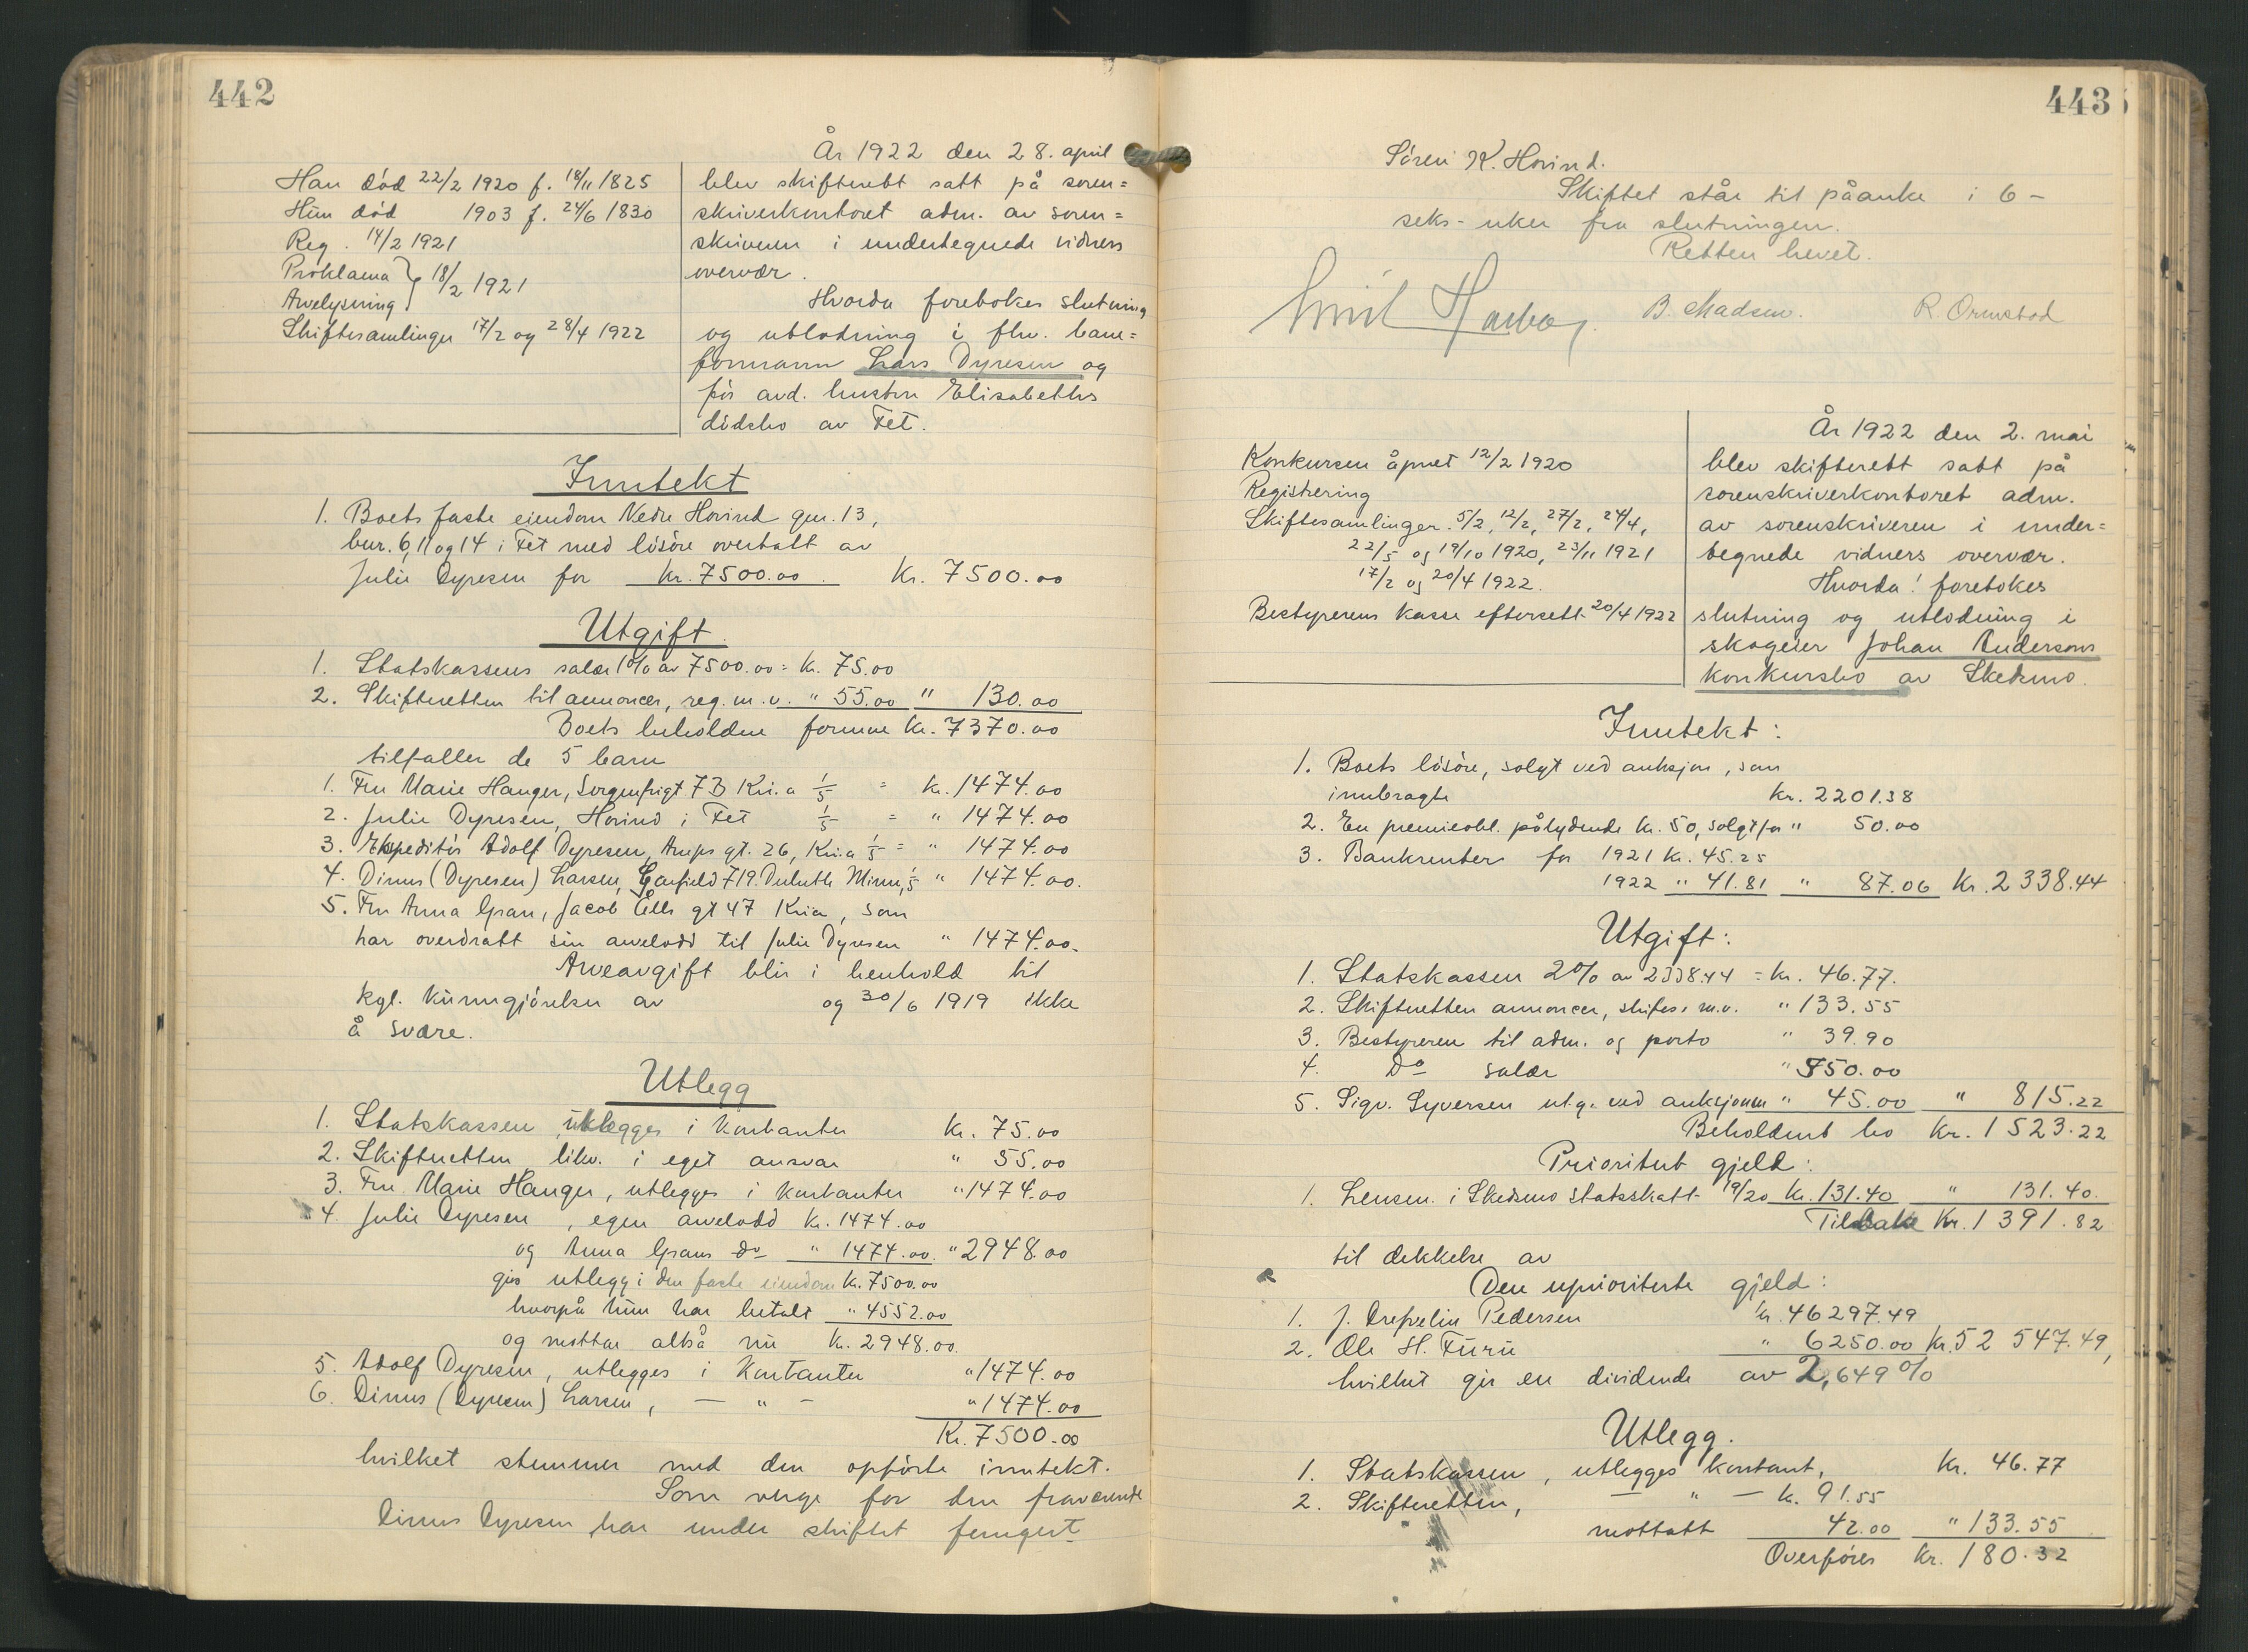 442
Han död 22/2 1920 f. 18/11 1825
Hun död 1903 f. 24/6 1830
Reg. 14/2 1921
Proklama } 18/2 1921
Arvelysning
Skiftesamlinger 17/2 og 28/4 1922
År 1922 den 28. april
blev skifterett satt på soren=
skriverkontoret adm. av soren=
skriveren i undertegnede vidners
overvær.
Hvorda foretokes slutning
og utlodning i fhv. bane=
formann Lars Dyresen og
før avd. hustru Elisabeths
dødsbo av Fet.
Inntekt
1. Boets faste eiendom Nedre Horind gnr. 13,
bnr. 6, 11 og 14 i Fet med lösöre overtatt av
Julie Dyresen for kr. 7500.00. Kr. 7500.00
Utgift.
1. Statskassens salær 1% av 7500.00 = kr. 75.00
2. Skifteretten til annoncer, reg. m.v. " 55.00 " 130.00
Boets beholdne formue kr. 7370.00
tilfaller de 5 barn
1. Fru Marie Hanger, Sorgenfrigt. 7B Kri.a 1/5 = kr. 1474.00
2. Julie Dyresen, Horind i Fet 1/5 = " 1474.00
3. Ekspeditör Adolf Dyresen, Arups gt. 26, Kri.a 1/5 = " 1474.00
4. Dinus (Dyresen) Larsen, Garfield 719. Duluth Minn, 1/5 " 1474.00.
5. Fru Anna Gran, Jacob Ålls gt 47 Kria, som
har overdratt sin arvelodd til Julie Dyresen " 1474.00.
Arveavgift blir i henhold til
kgl. kunngjörelser av og 30/6 1919 ikke
å svare.
Utlegg
1. Statskassen, utlegges i kontanter kr. 75.00
2. Skifteretten likv. i eget ansvar " 55.00
3. Fru Marie Hanger, utlegges i kontanter " 1474.00
4. Julie Dyresen, egen arvelodd kr. 1474.00
og Anna Grans do " 1474.00. " 2948.00
gis utlegg i den faste eiendom kr. 7500.00
hvorpå hun har betalt " 4552.00
og mottar altså nu kr. 2948.00.
5. Adolf Dyresen, utlegges i kontanter " 1474.00
6. Dinus (Dyresen) Larsen, — " — " 1474.00
Kr. 7500.00
hvilket stemmer med den opförte inntekt.
Som verge for den fraværende
Dinus Dyresen har under skiftet fungert
443
Sören K. Horind.
Skiftet står til påanke i 6 -
seks - uker fra slutningen.
Retten hevet.
B. Madsen. R. Ormstad
Konkursen åpnet 12/2 1920
Registrering
Skiftesamlinger. 5/2, 12/2, 27/2, 24/4,
22/5 og 19/10 1920, 23/11 1921
17/2 og 20/4 1922.
Bestyrerens kasse eftersett 20/4 1922
År 1922 den 2. mai
blev skifterett satt på
sorenskriverkontoret adm.
av sorenskriveren i under=
tegnede vidners overvær.
Hvorda! foretokes
slutning og utlodning i
skogeier Johan Andersons
konkursbo av Skedsmo.
Inntekt:
1. Boets lösöre, solgt ved auksjon, som
innbragte kr. 2201.38
2. En premieobl. pålydende kr. 50, solgt for " 50.00
3. Bankrenter for 1921 kr. 45.25
1922 " 41.81 " 87.06 Kr. 2338.44
Utgift:
1. Statskassen 2% av 2338.44 = kr. 46.77.
2. Skifteretten annoncer, skifess. m.v. " 133.55
3. Bestyreren til adm. og porto " 39.90
4. Do salær " 550.00
5. Sigv. Syversen utg. ved auksjonen " 45.00 " 815.22
Beholdent bo kr. 1523.22
Prioritert gjeld:
1. Lensm. i Skedsmo statsskatt 19/20 kr. 131.40 " 131.40.
Tilbake kr. 1391.82
til dekkelse av
Den uprioriterte gjeld:
1. J. Pedersen kr. 46297.49
2. Ole H. Furu " 6250.00 kr. 52 547.49,
hvilket gir en dividende av 2,649%
Utlegg.
1. Statskassen, utlegges kontant, kr. 46.77
2. Skifteretten, — " — k. 91.55
mottatt 42.00 " 133.55
Overföres kr. 180.32